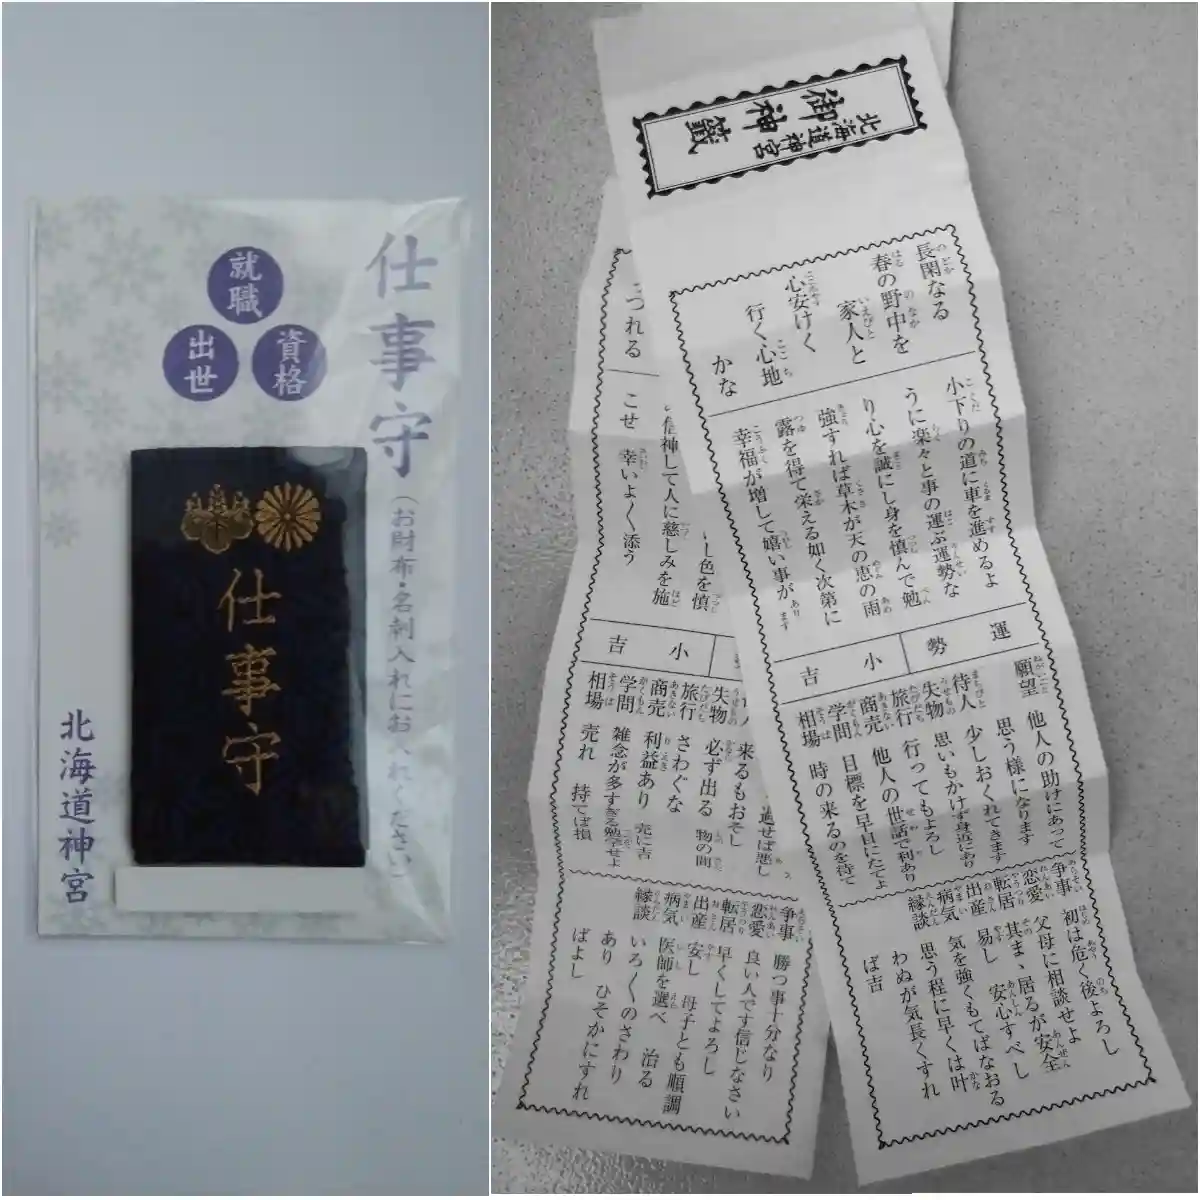 仕事守
(お財布・名刺入れにお入れください)
就職
出世
資格
仕事守
北海道神宮
北海道神宮
御神籤
長閑なる
春の野中を
家人と
心安けく
行く心地
かな
小下りの道に車を進めるよ
うに楽々と事の運ぶ運勢な
り心を誠にし身を慎んで勉
強すれば草木が天の恵の雨
露を得て栄える如く次第に
幸福が増して嬉い事があります
運勢
小吉
願望 他人の助けにあって
思う様になります
待人 少しおくれてきます
失物 思いもかけず身近にあり
旅行 行ってもよろし
商売 他人の世話で利あり
学問 目標を早目にたてよ
相場 時の来るのを待て
争事 初は危く後よろし
恋愛 父母に相談せよ
転居 其まゝ居るが安全
出産 易し 安心すべし
病気 気を強くもてばなおる
縁談 思う程に早くは叶
わぬが気長くすれ
ば吉
つれる
こせ
信神して人に慈しみを施
し色を慎
幸いよく添う
小吉
過せば悪し
来るもおそし
失物 必ず出る 物の間
旅行 さわぐな
商売 利益あり 売に吉
学問 雑念が多すぎる勉学せよ
相場 売れ 持てば損
争事 勝つ事十分なり
恋愛 良い人です信じなさい
転居 早くしてよろし
出産 安し 母子とも順調
病気 医師を選べ 治る
縁談 いろ〱のさわり
あり ひそかにすれ
ばよし